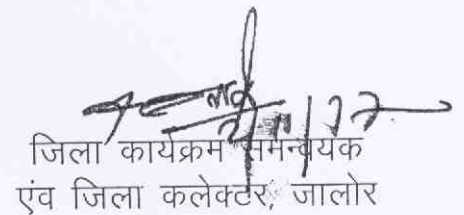 जिला कार्यक्रम समन्वयक
एंव जिला कलेक्टर, जालोर